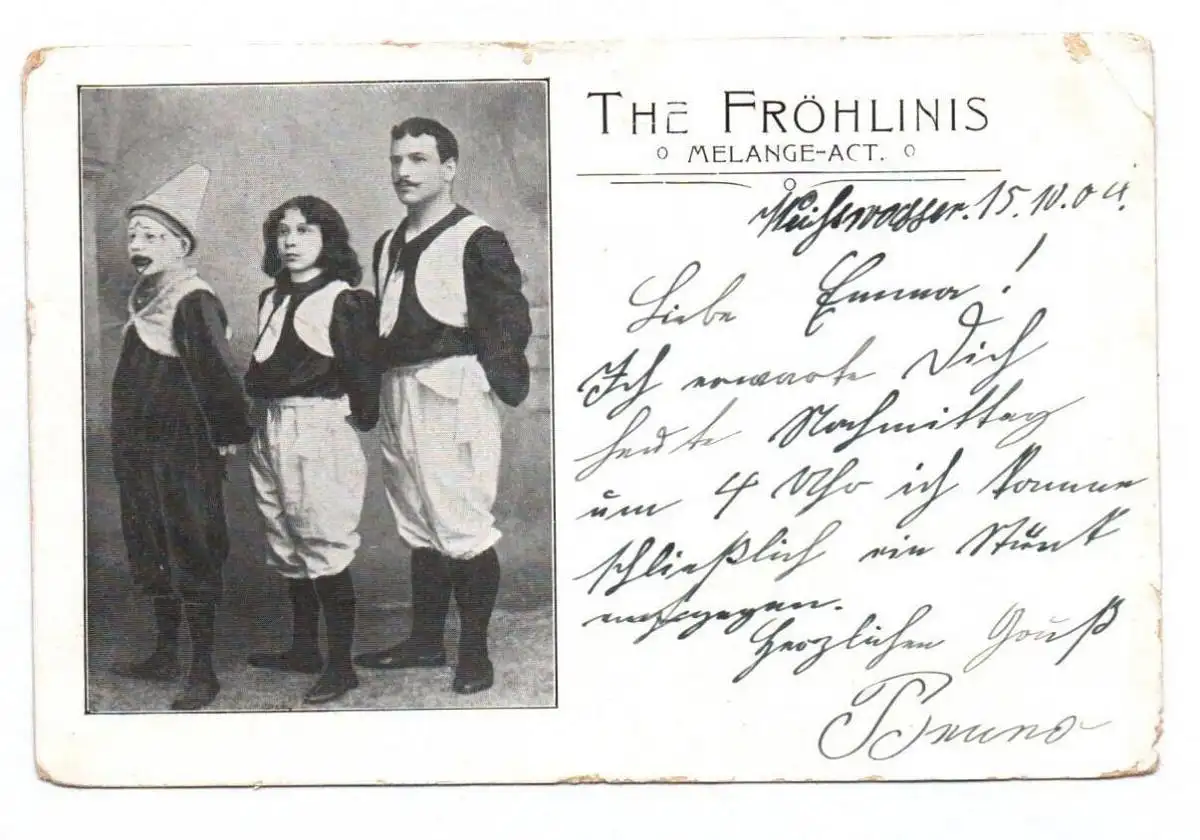 THE FRÖHLINIS
MELANGE-ACT.
Weißwasser. 15.10.04.
Liebe Emma!
Ich erwarte Dich
heute Nachmittag
um 4 Uhr ich komme
schließlich ein Stück
entgegen.
Herzlichen Gruß
Bruno